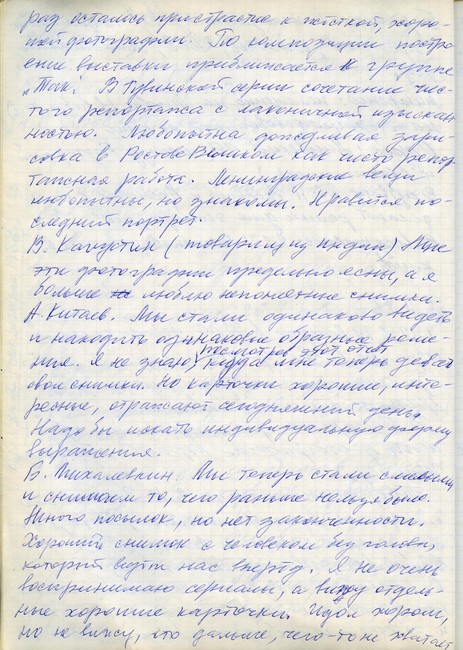 раз осталось пристрастие к жёсткой, хоро-
шей фотографии. По композиции постро-
ение выставки приближается к группе
„Так". В Туринской серии сочетание чис-
того репортажа с лаконичной изыскан-
ностью. Любопытна дождливая зари-
совка в Ростове Великом как чисто репор-
тажная работа. Ленинградские вещи
любопытны, но знакомы. Нравится по-
следний портрет.
В. Капустин (товарищ из Мне
эти фотографии предельно ясны, а я
больше люблю непонятные снимки.
А. Китаев. Мы стали одинаково видеть
и находить одинаковые образные реше-
ния. Я не знаю, посмотрев этот отчёт куда мне теперь девать
свои снимки. Но карточки хорошие, инте-
ресные, отражают сегодняшний день.
Надо бы искать индивидуальную форму
выражения.
Б. Михалевкин. Мы теперь стали смелыми
и снимаем то, чего раньше нельзя было.
Много посылок, но нет законченности.
Хороший снимок с человеком без головы,
который ведёт нас вперёд. Я не очень
воспринимаю сериалы, а вижу отдель-
ные хорошие карточки. Идол хорош,
но не вижу, что дальше, чего-то не хватает